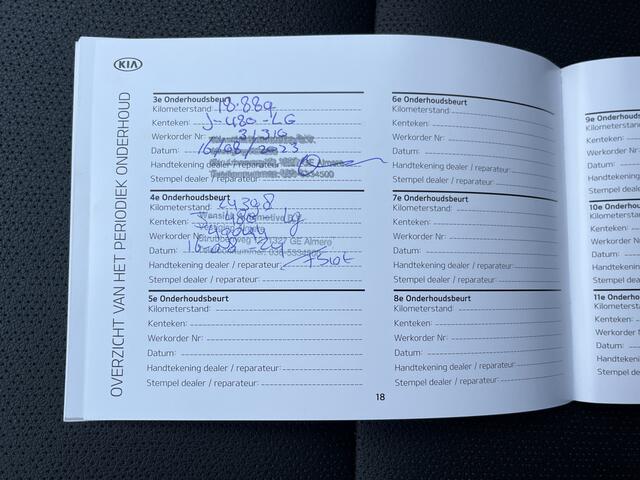 KIA
OVERZICHT VAN HET PERIODIEK ONDERHOUD
3e Onderhoudsbeurt
Kilometerstand: 18.889
Kenteken: J-480-LG
Werkorder Nr:
Datum: 16/08/2023
Handtekening dealer / reparateur:
Stempel dealer / reparateur:
4e Onderhoudsbeurt
Kilometerstand: 24398
Kenteken:
Werkorder Nr:
Strubbenweg 1327 GE Almere
Datum:
Handtekening dealer / reparateur:
Stempel dealer / reparateur:
5e Onderhoudsbeurt
Kilometerstand:
Kenteken:
Werkorder Nr:
Datum:
Handtekening dealer / reparateur:
Stempel dealer / reparateur:
6e Onderhoudsbeurt
Kilometerstand:
Kenteken:
Werkorder Nr:
Datum:
Handtekening dealer / reparateur:
Stempel dealer / reparateur:
7e Onderhoudsbeurt
Kilometerstand:
Kenteken:
Werkorder Nr:
Datum:
Handtekening dealer / reparateur:
Stempel dealer / reparateur:
8e Onderhoudsbeurt
Kilometerstand:
Kenteken:
Werkorder Nr:
Datum:
Handtekening dealer / reparateur:
Stempel dealer / reparateur:
18
9e Onderhoud
Kilometerstand
Kenteken:
Werkorder Nr:
Datum:
Handtekening
Stempel deale
10e Onderho
Kilometersta
Kenteken:
Werkorder N
Datum:
Handtekenin
Stempel dea
11e Onderh
Kilometerst
Kenteken:
Werkorder
Datum:
Handteken
Stempel de